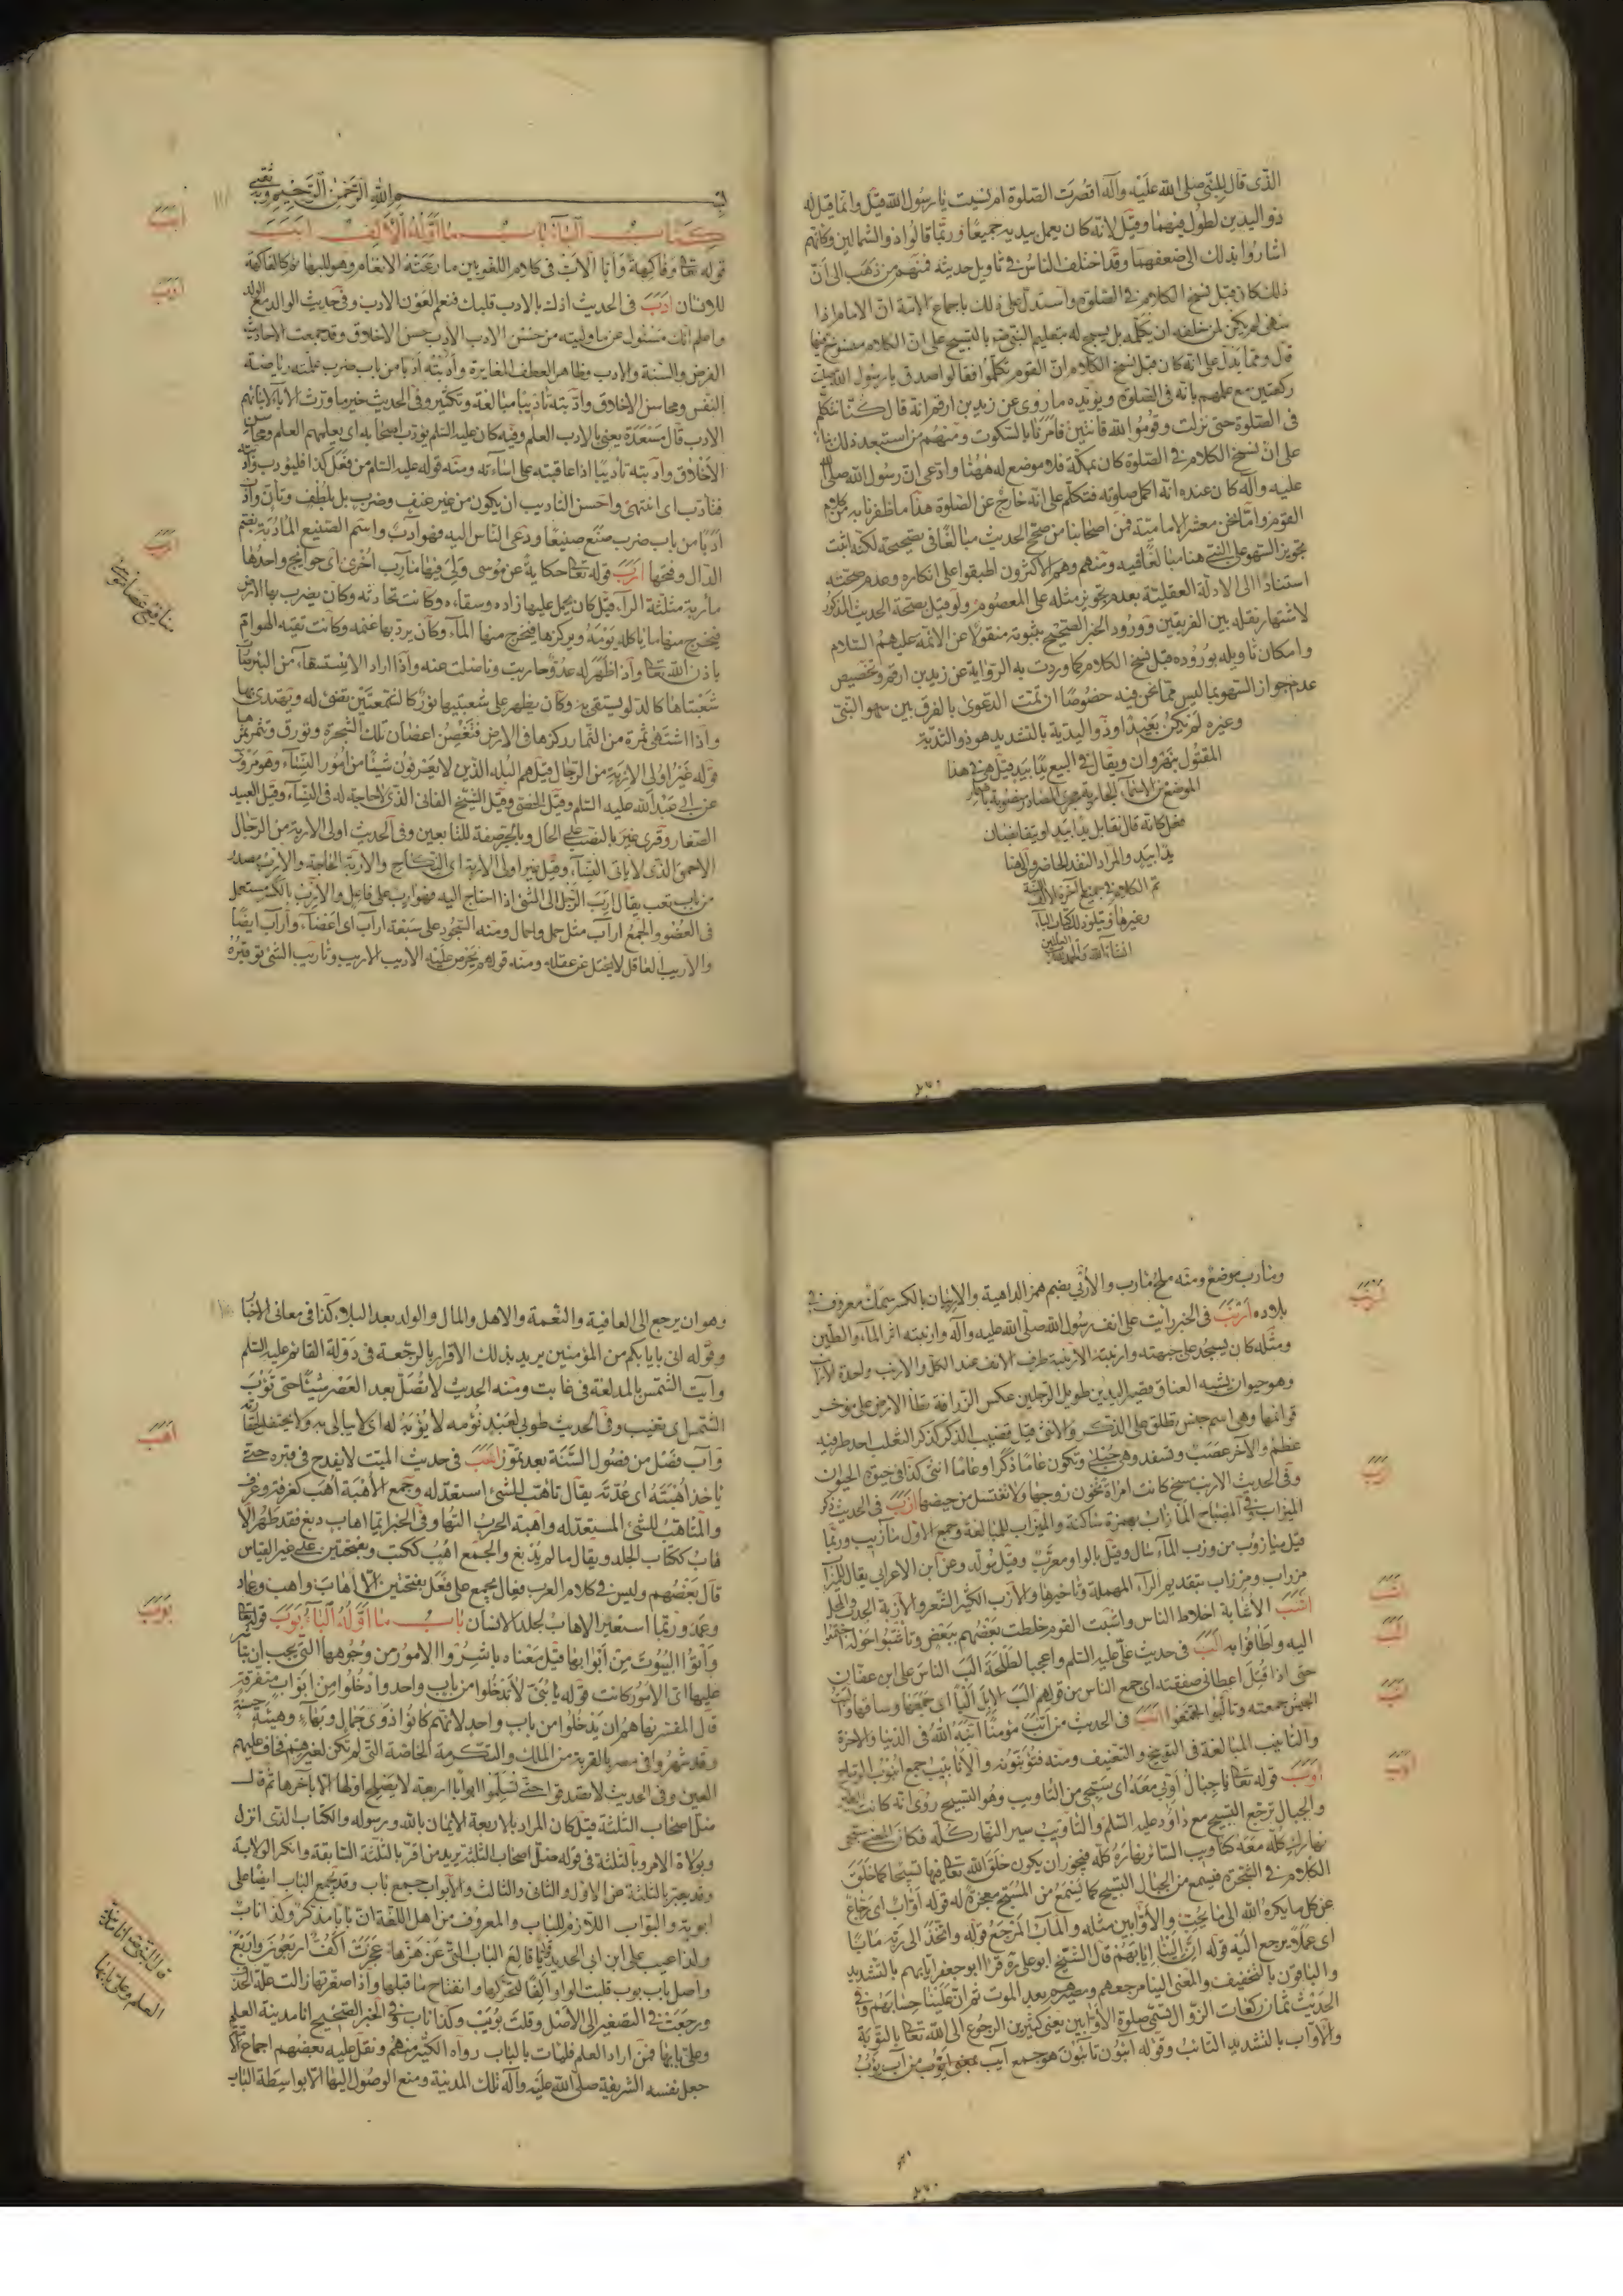 الذى قال للنبى صلى الله عليه وآله اقصرت الصلوة ام نسيت يا رسول الله قيل وانما قيل له
ذو اليدين لطول فيهما وقيل لانه كان يعمل بيديه جميعا وربما قالوا ذو الشمالين وكانهم
اشاروا بذلك الى ضعفهما وقد اختلف الناس فى تاويل حديثه فمنهم من ذهب الى ان
ذلك كان قبل نسخ الكلام فى الصلوة واستدل على ذلك باجماع الامة ان الامام اذا
سهى لم يكن لمن خلفه ان يكلمه بل يسبح له بتعليم النبى ص بالتسبيح على ان الكلام منسوخ فيها
قال ومما يدل على انه كان قبل نسخ الكلام ان القوم تكلموا فقالوا صدق يا رسول الله صليت
ركعتين مع علمهم بانه فى الصلوة ويؤيده ما روى عن زيد بن ارقم انه قال كنا نتكلم
فى الصلوة حتى نزلت وقوموا لله قانتين فامرنا بالسكوت ومنهم من استبعد ذلك بناء
على ان نسخ الكلام فى الصلوة كان بمكة فلا موضع له ههنا وادعى ان رسول الله صلى الله
عليه وآله كان عنده انه اكمل صلوته فتكلم على انه خارج عن الصلوة هذا ما ظفرنا به من كلام
القوم واما نحن معشر الامامية فمن اصحابنا من صحح الحديث مبالغا فى تصحيحه لكنه اثبت
تجويز السهو على النبى هنا مبالغا فيه ومنهم وهم الاكثرون اطبقوا على انكاره وعدم صحته
استنادا الى الادلة العقلية بعدم تجويز مثله على المعصوم ولو قيل بصحة الحديث المذكور
لاشتهار نقله بين الفريقين وورود الخبر الصحيح بثبوته منقولا عن الائمة عليهم السلام
وامكان تاويله بوروده قبل نسخ الكلام كما وردت به الرواية عن زيد بن ارقم وتخصيص
عدم جواز السهو بما ليس مما نحن فيه خصوصا ان تمت الدعوى بالفرق بين سهو النبى
وغيره لم يكن بعيدا وذو اليدية بالتشديد هو ذو الثدية
المقتول بنهروان ويقال فى البيع يدا بيد قيل هى فى هذا
الموضع من الاسماء الجارية مجرى المصادر
كانه قال تقابل يدا بيد او يتقابضان
يدا بيد والمراد النقد الحاضر
تم الكلام فى جميع آخره الالف
وغيرها ويتلوه كتاب الباء
انشاء الله والحمد لله
بسم الله الرحمن الرحيم وبه ثقتى
كتاب الباء باب ما اوله الالف ابب
قوله تعالى وفاكهة وابا الاب فى كلام اللغويين ما رعته الانعام وهو للبهائم كالفاكهة
للانسان ادب فى الحديث اذك بالادب قلبك فنعم العون الادب وفى حديث الوالد مع الولد
واعلم انك مسئول عن ما وليته من حسن الادب الادب حسن الاخلاق وقد جمعت الاحاديث
الفرض والسنة والادب وظاهر العطف المغايرة وادبته ادبا من باب ضرب علمته رياضة
النفس ومحاسن الاخلاق وادبته تاديبا مبالغة وتكثير وفى الحديث خير ما ورث الآباء لابنائهم
الادب قال مسعدة يعنى بالادب العلم وفيه كان عليه السلم يؤدب اصحابه اى يعلمهم العلم ومحاسن
الاخلاق وادبته تاديبا اذا عاقبته على اساءته ومنه قوله عليه السلام من فعل كذا فليؤدب وادبته
فتادب اى انتهى واحسن التاديب ان يكون من غير عنف وضرب بل بلطف وتأن وادب
ادبا من باب ضرب صنع صنيعا ودعى الناس اليه فهو آدب واسم الصنيع المادبة بضم
الدال وفتحها ارب قوله تعالى حكاية عن موسى ولى فيها مآرب اخرى اى حوائج واحدها
ماربة مثلثة الراء قيل كان يحمل عليها زاده وسقاءه وكانت تحادثه وكان يضرب بها الارض
فيخرج منها ما ياكله يومه ويركزها فيخرج منها الماء وكان يرد بها غنمه وكانت تقيه الهوام
باذن الله تعالى واذا ظهر له عدو حاربت وناضلت عنه واذا اراد الاستسقاء من البئر
شعبتاها كالدلو يستقى به وكان يظهر على شعبتيها نور كالشمعتين تضىء له ويهتدى بها
واذا اشتهى ثمرة من الثمار ركزها فى الارض فتغصن اغصان تلك الشجرة وتورق وتثمر ثمرها
قوله غير اولى الاربة من الرجال قيل هم البله الذين لا يعرفون شيئا من امور النساء وهو مروى
عن ابى عبد الله عليه السلم وقيل الخصى وقيل الشيخ الفانى الذى لا حاجة له فى النساء وقيل العبيد
الصغار وقرى غير بالنصب على الحال وبالجر صفة للتابعين وفى الحديث اولى الاربة من الرجال
الاحمق الذى لا ياتى النساء وقيل غير اولى الاربة اى النكاح والاربة الحاجة والارب مصدر
من باب تعب يقال ارب الرجل الى الشىء اذا احتاج اليه فهو آرب على فاعل والارب بالكسر مستعمل
فى العضو والجمع ارآب مثل حمل واحمال ومنه السجود على سبعة ارآب اى اعضاء وارآب ايضا
والاريب العاقل لا يختل عن عقله ومنه قولهم يحرص عليه الاديب الاريب وتاريب الشىء توفيره
ابب
ادب
ارب
منافع عصا موسى
ومارب موضع ومنه ملح مارب والاربى بضم همز الداهية والاربيان بالكسر سمك معروف فى
بلاده ارنب فى الخبر رايت على انف رسول الله صلى الله عليه وآله وارنبته اثر الماء والطين
ومثله كان يسجد على جبهته وارنبته الارنبة طرف الانف عند الكل والارنب واحدة الارانب
وهو حيوان يشبه العناق قصير اليدين طويل الرجلين عكس الزرافة يطأ الارض على مؤخر
قوائمها وهى اسم جنس تطلق على الذكر والانثى قيل قضيب الذكر كذكر الثعلب احد طرفيه
عظم والآخر عصب وتسفد وهى حبلى وتكون عاما ذكرا وعاما انثى كذا فى حيوة الحيوان
وفى الحديث الارنب مسخ كانت امراة تخون زوجها ولا تغتسل من حيضها ازب فى الحديث ذكر
الميزاب وفى المصباح المازاب بهمزة ساكنة والميزاب للمبالغة وجمع الاول مآزيب وربما
قيل ميازيب من وزب الماء سال وقيل بالواو معرب وقيل مولد وعن ابن الاعرابى يقال للميزاب
مزراب ومرزاب بتقديم الراء المهملة وتاخيرها والازب الكثير الشعر والازبة الجدب والمحل
اشب الاشابة اخلاط الناس واشبت القوم خلطت بعضهم ببعض وتاشبوا حوله اجتمعوا
اليه واطافوا به الب فى حديث على عليه السلم واعجبا لطلحة الب الناس على ابن عفان
حتى اذا قتل اعطانى صفقته اى جمع الناس من قولهم الب الابل البا اى جمعها وساقها والبت
الجيش جمعته وتالبوا اجتمعوا انب فى الحديث من انب مؤمنا انبه الله فى الدنيا والآخرة
والتانيب المبالغة فى التوبيخ والتعنيف ومنه فتؤنبونه والانابيب جمع انبوب
اوب قوله تعالى يا جبال اوبى معه اى سبحى من التاويب وهو التسبيح روى انه كانت الطير
والجبال ترجع التسبيح مع داود عليه السلم والتاويب سير النهار كله فكان المعنى سبحى
نهارك كله معه كتاويب السائر نهاره كله فيجوز ان يكون خلق الله تعالى فيها تسبيحا كما خلق
الكلام فى الشجرة فيسمع من الجبال التسبيح كما يسمع من المسبح معجزة له قوله اواب اى رجاع
عن كل ما يكره الله الى ما يحب والاوابين مثله والمآب المرجع قوله واتخذ الى ربه مآبا
اى عملا يرجع اليه قوله ان الينا ايابهم قال الشيخ ابو على ره قرا ابو جعفر ايابهم بالتشديد
والباقون بالتخفيف والمعنى الينا مرجعهم ومصيرهم بعد الموت ثم ان علينا حسابهم وفى
الحديث ثمان ركعات الزوال تسمى صلوة الاوابين يعنى كثيرين الرجوع الى الله تعالى بالتوبة
والاواب بالتشديد التائب وقوله آئبون تائبون هو جمع آيب بمعنى اؤب من آب يؤب
ارنب
ازب
اشب
الب
انب
اوب
وهو ان يرجع الى العافية والنعمة والاهل والمال والولد بعد البلاء كذا فى معانى الاخبار
وقوله انى بايابكم من المؤمنين يريد بذلك الاقرار بالرجعة فى دولة القائم عليه السلم
وآبت الشمس بالمد لغة فى غابت ومنه الحديث لا تصل بعد العصر شيئا حتى تؤب
الشمس اى تغيب وفى الحديث طوبى لعبد نؤمه لا يؤبه له اى لا يبالى به ولا يحتفل لحقارته
وآب فصل من فصول السنة بعد تموز اهب فى حديث الميت لا يفدح فى قبره حتى
ياخذ اهبته اى عدته يقال تاهب للشىء استعد له وجمع الاهبة اهب كغرفة وغرف
والمتاهب للشىء المستعد له واهبة الحرب التها وفى الخبر ايما اهاب دبغ فقد طهر الا
هاب ككتاب الجلد ويقال ما لم يدبغ والجمع اهب ككتب وبفتحتين على غير القياس
قال بعضهم وليس فى كلام العرب فعال يجمع على فعل بفتحتين الا اهاب واهب وعماد
وعمد وربما استعير الاهاب لجلد الانسان باب ما اوله الباء بوب قوله تعالى
واتوا البيوت من ابوابها قيل معناه باشروا الامور من وجوهها التى يجب ان تباشر
عليها اى الامور كانت قوله يا بنى لا تدخلوا من باب واحد وادخلوا من ابواب متفرقة
قال المفسر نهاهم ان يدخلوا من باب واحد لانهم كانوا ذوى جمال وبهاء وهيئة حسنة
وقد شهروا فى مصر بالقربة من الملك والتكرمة الخاصة التى لم تكن لغيرهم فخاف عليهم
العين وفى الحديث لا تصدقوا حتى تسلموا ابوابا اربعة لا يصلح اولها الا بآخرها ثم قال
ضل اصحاب الثلثة قيل كان المراد بالاربعة الايمان بالله ورسوله والكتاب الذى انزل
وبولاة الامر وبالثلثة فى قوله ضل اصحاب الثلثة يريد من اقر بالثلثة السابقة وانكر الولاية
وقد يعبر بالثلثة عن الاول والثانى والثالث والابواب جمع باب وقد يجمع الباب ايضا على
ابوبة والبواب اللازم للباب والمعروف من اهل اللغة ان بابا مذكر وكذا ناب
ولذا عيب على ابن ابى الحديد قالع الباب التى عن هزها عجزت اكف اربعون واربع
واصل باب بوب قلبت الواو الفا لتحركها وانفتاح ما قبلها واذا صغرتها زالت علة الحذف
ورجعت فى التصغير الى الاصل وقلت بويب وكذا ناب وفى الخبر الصحيح انا مدينة العلم
وعلى بابها فمن اراد العلم فليات بالباب رواه الكثير منهم ونقل عليه بعضهم اجماع الامة
جعل نفسه الشريفة صلى الله عليه وآله تلك المدينة ومنع الوصول اليها الا بواسطة الباب
اهب
بوب
قال النبى ص انا مدينة
العلم وعلى بابها